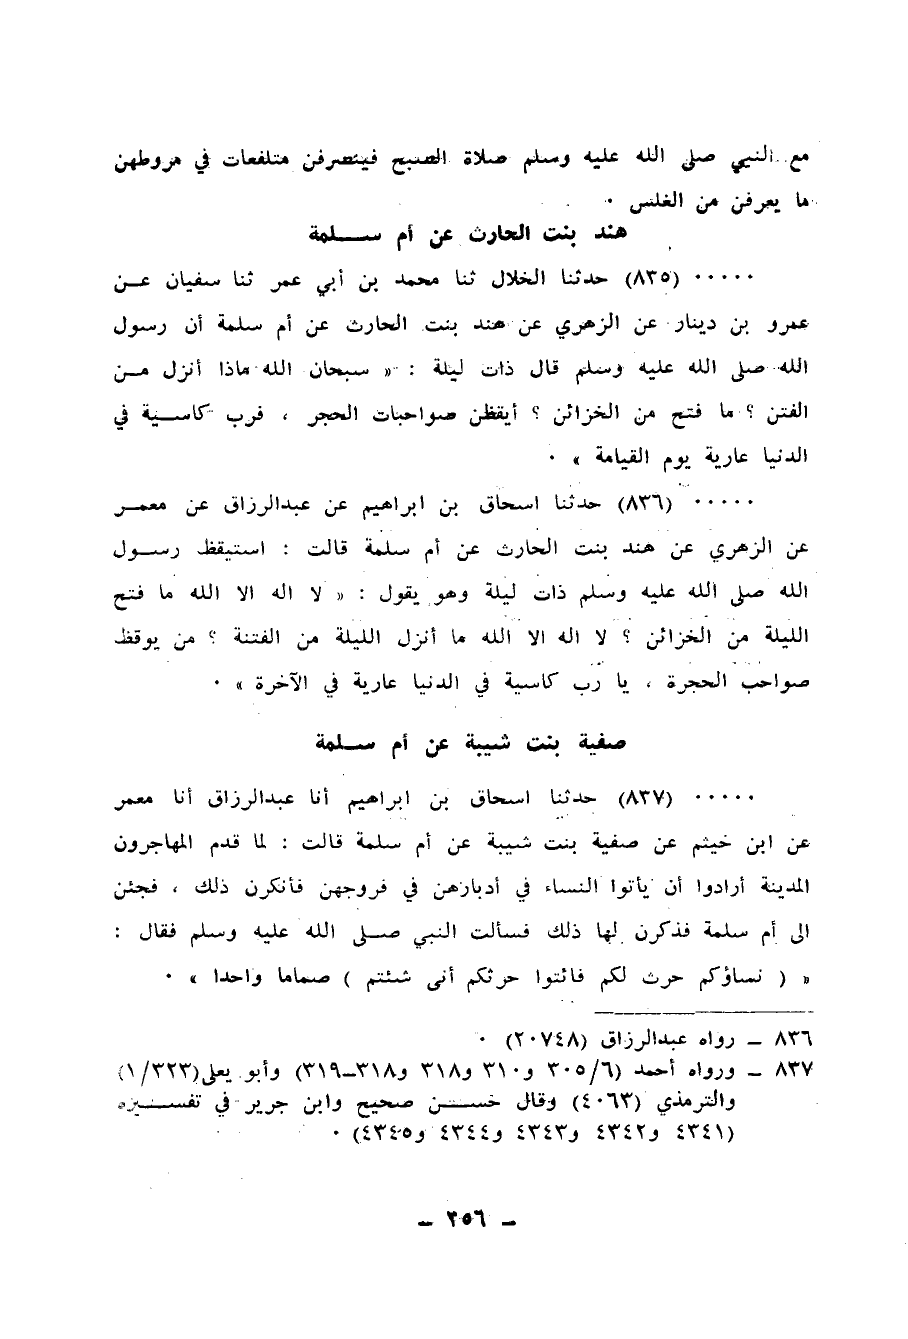 مع النبي صلى الله عليه وسلم صلاة الصبح فينصرفن متلفعات في مروطهن
ما يعرفن من الغلس ٠
هند بنت الحارث عن أم سـلمة
٠٠٠٠٠ (٨٣٥) حدثنا الخلال ثنا محمد بن أبي عمر ثنا سفيان عـن
عمرو بن دينار عن الزهري عن هند بنت الحارث عن أم سلمة أن رسول
الله صلى الله عليه وسلم قال ذات ليلة : « سبحان الله ماذا أنزل مـن
الفتن ؟ ما فتح من الخزائن ؟ أيقظن صواحبات الحجر ، فرب كاسـية في
الدنيا عارية يوم القيامة » ٠
٠٠٠٠٠ (٨٣٦) حدثنا اسحاق بن ابراهيم عن عبدالرزاق عن معمـر
عن الزهري عن هند بنت الحارث عن أم سلمة قالت : استيقظ رسـول
الله صلى الله عليه وسلم ذات ليلة وهو يقول : « لا اله الا الله ما فتح
الليلة من الخزائن ؟ لا اله الا الله ما أنزل الليلة من الفتنة ؟ من يوقظ
صواحب الحجرة ، يا رب كاسية في الدنيا عارية في الآخرة » ٠
صفية بنت شيبة عن أم سـلمة
٠٠٠٠٠ (٨٣٧) حدثنا اسحاق بن ابراهيم أنا عبدالرزاق أنا معمر
عن ابن خيثم عن صفية بنت شيبة عن أم سلمة قالت : لما قدم المهاجرون
المدينة أرادوا أن يأتوا النساء في أدبارهن في فروجهن فأنكرن ذلك ، فجئن
الى أم سلمة فذكرن لها ذلك فسألت النبي صـلى الله عليه وسلم فقال :
« ( نساؤكم حرث لكم فائتوا حرثكم أنى شئتم ) صماما واحدا » ٠
٨٣٦ ـ رواه عبدالرزاق (٢٠٧٤٨) ٠
٨٣٧ ـ ورواه أحمد (٣٠٥/٦ و٣١٠ و٣١٨ و٣١٨ـ٣١٩) وأبو يعلى(١/٣٢٣)
والترمذي (٤٠٦٣) وقال حسـن صحيح وابن جرير في تفسـيره
(٤٣٤١ و٤٣٤٢ و٤٣٤٣ و٤٣٤٤ و٤٣٤٥) ٠
ـ ٣٥٦ ـ